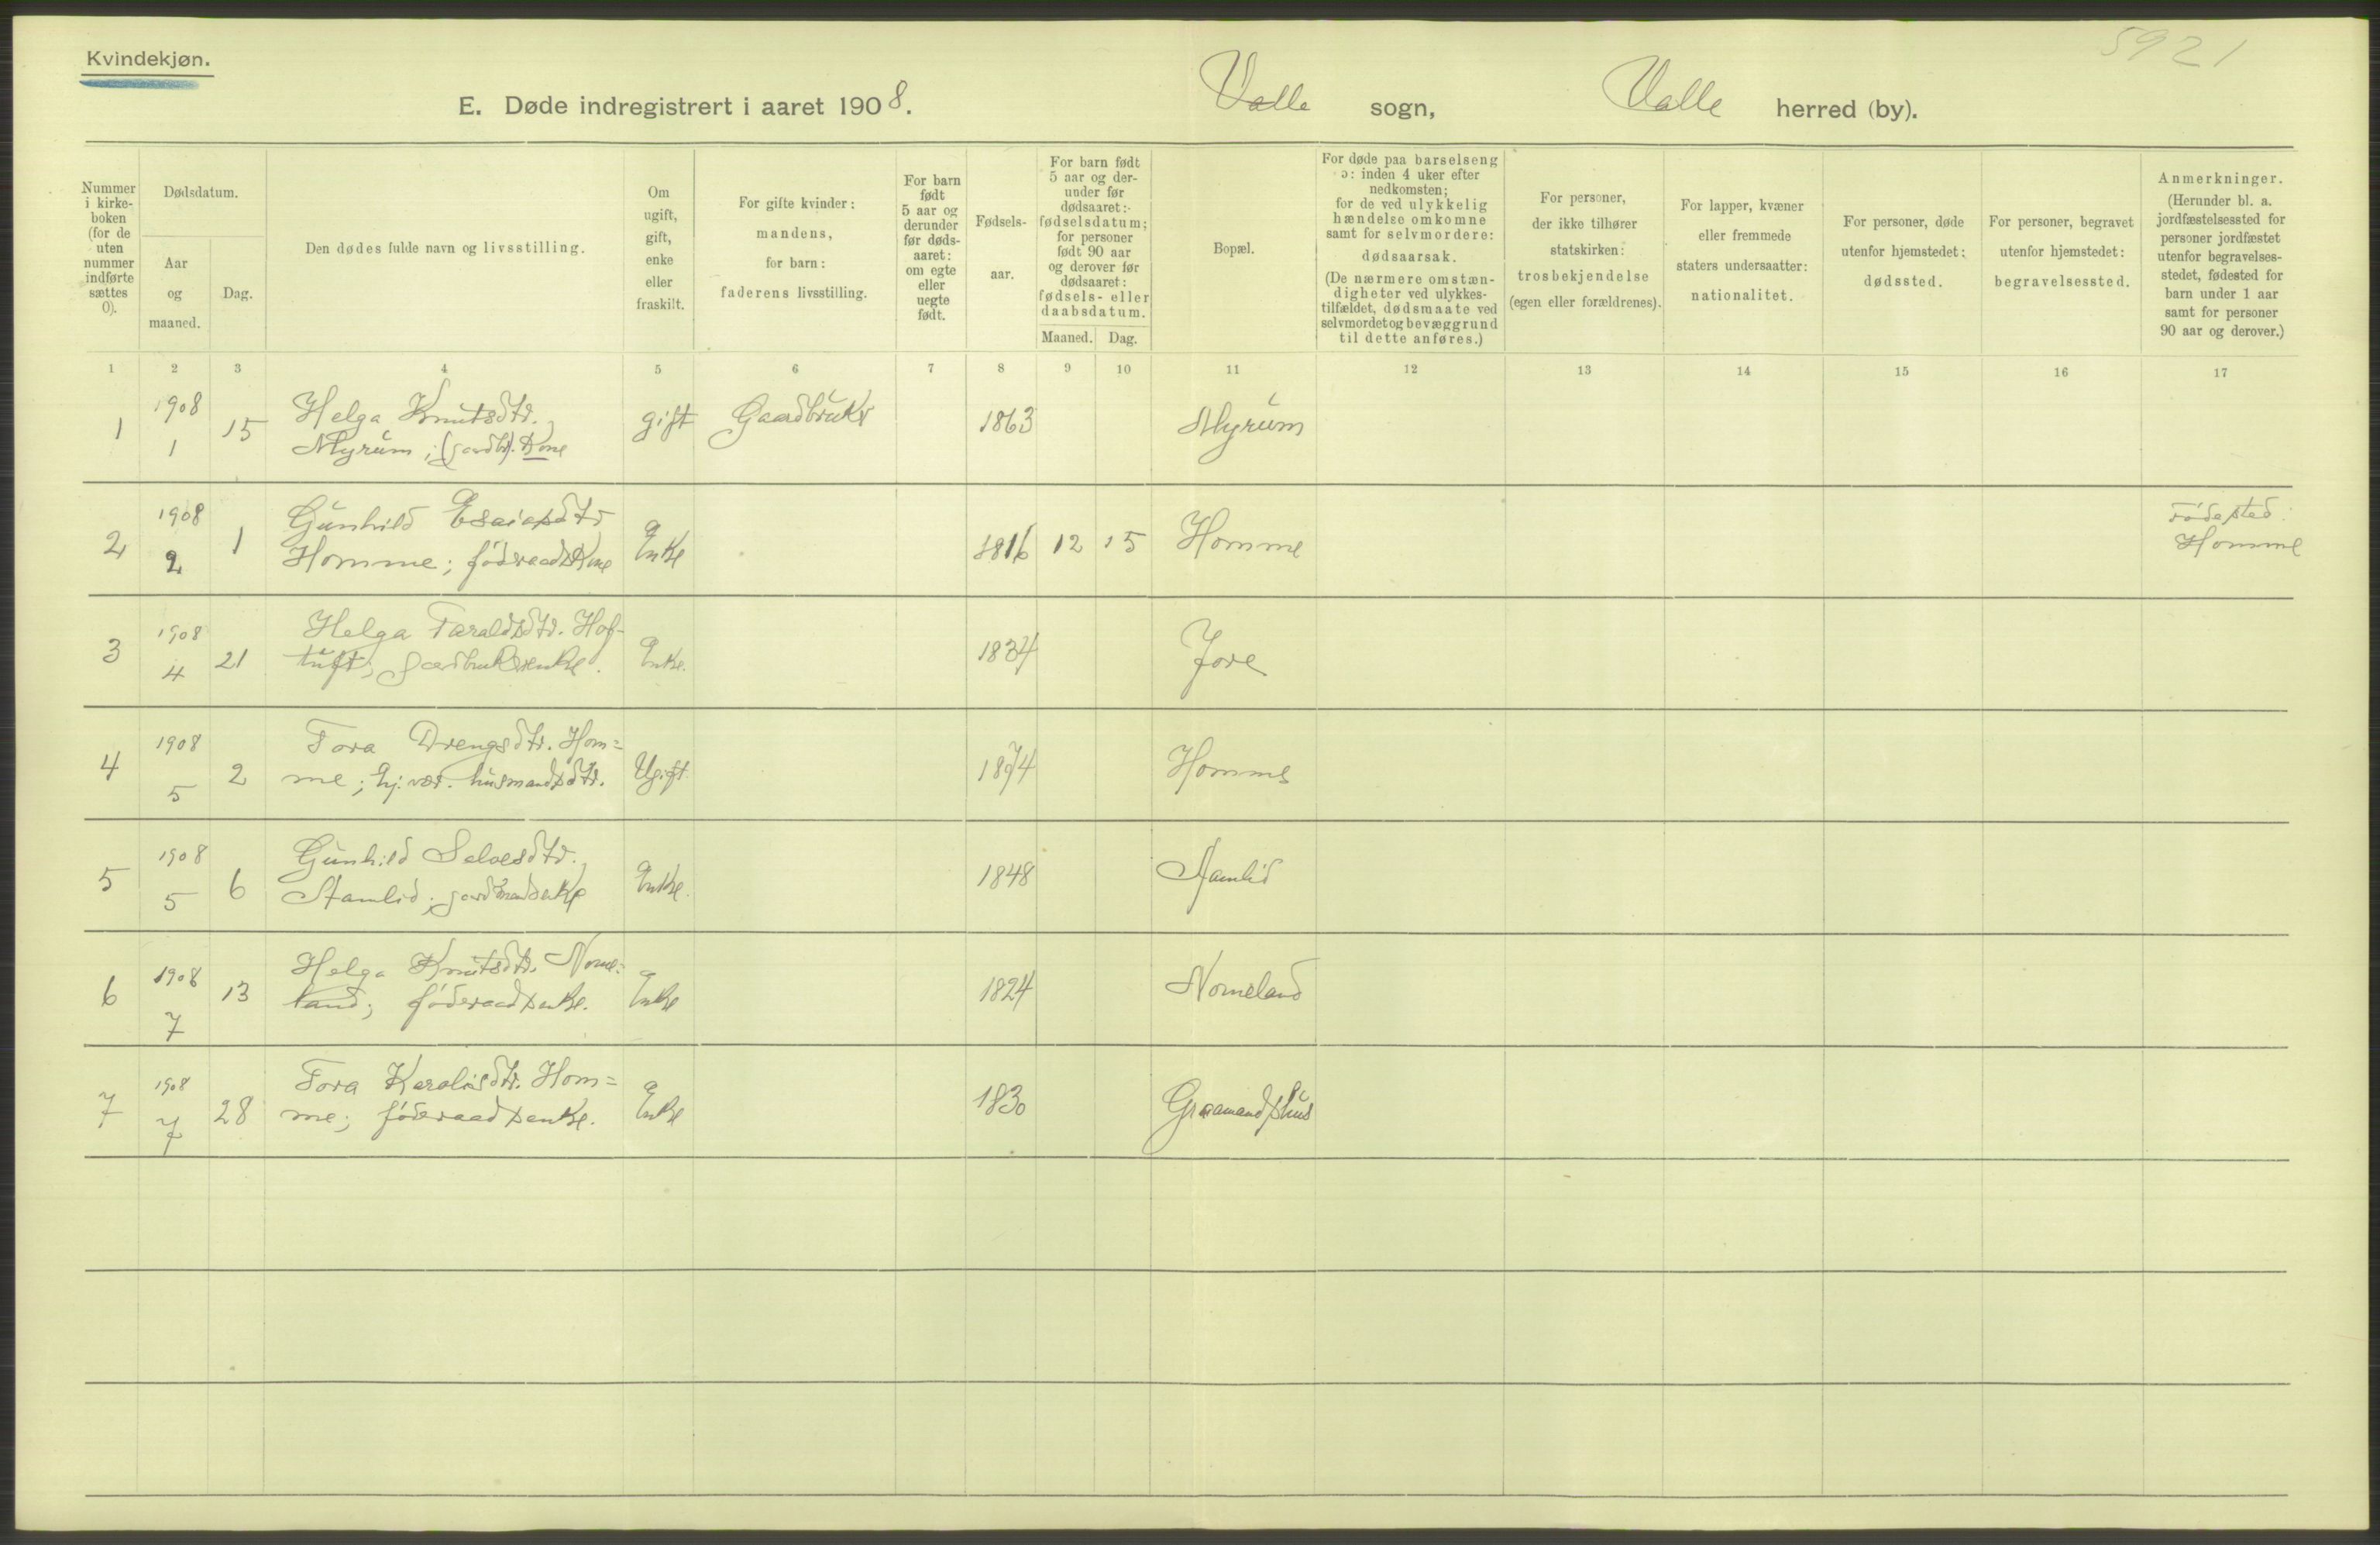 Kvindekjøn.
5921
E. Døde indregistrert i aaret 1908. Valle sogn, Valle herred (by).
Nummer i kirke- boken (for de uten nummer indførte sættes 0).
Dødsdatum.
Aar og maaned.
Dag.
Den dødes fulde navn og livsstilling.
Om ugift, gift, enke eller fraskilt.
For gifte kvinder: mandens, for barn: faderens livsstilling.
For barn født 5 aar og derunder før døds- aaret: om egte eller uegte født.
Fødsels- aar.
For barn født 5 aar og der- under før dødsaaret:- fødselsdatum; for personer født 90 aar og derover før dødsaaret: fødsels- eller daabsdatum.
Maaned. Dag.
Bopæl.
For døde paa barselseng ɔ: inden 4 uker efter nedkomsten; for de ved ulykkelig hændelse omkomne samt for selvmordere: dødsaarsak.
(De nærmere omstæn- digheter ved ulykkes- tilfældet, dødsmaate ved selvmordet og bevæggrund til dette anføres.)
For personer, der ikke tilhører statskirken: trosbekjendelse (egen eller forældrenes).
For lapper, kvæner eller fremmede staters undersaatter: nationalitet.
For personer, døde utenfor hjemstedet: dødssted.
For personer, begravet utenfor hjemstedet: begravelsessted.
Anmerkninger.
(Herunder bl. a. jordfæstelsessted for personer jordfæstet utenfor begravelses- stedet, fødested for barn under 1 aar samt for personer 90 aar og derover.)
1 2 3 4 5 6 7 8 9 10 11 12 13 14 15 16 17
1 1908 1 15 Helga Knutsdtr. gift Gaardbruker 1863 Myrum
Myrum; (gardbr). Kone
2 1908 2 1 Gunhild Esaiasdtr Enke 1816 12 15 Homme Fødested:
Homme; føderaadskone Homme
3 1908 4 21 Helga Taraldsdtr. Hof- Enke. 1834 Jore
tuft; gardbrukerenke.
4 1908 5 2 Tora Drengsdtr. Hom= Ugift 1874 Homme
me; hj. vær. husmandsdtr.
5 1908 5 6 Gunhild Salvesdtr. Enke. 1848 Stamlid
Stamlid;
6 1908 7 13 Helga Knutsdtr. Nome= Enke 1824 Nomeland
land; føderaadsenke.
7 1908 7 28 Tora Karolisdtr. Hom= Enke 1830 Graamandshus
me; føderaadsenke.